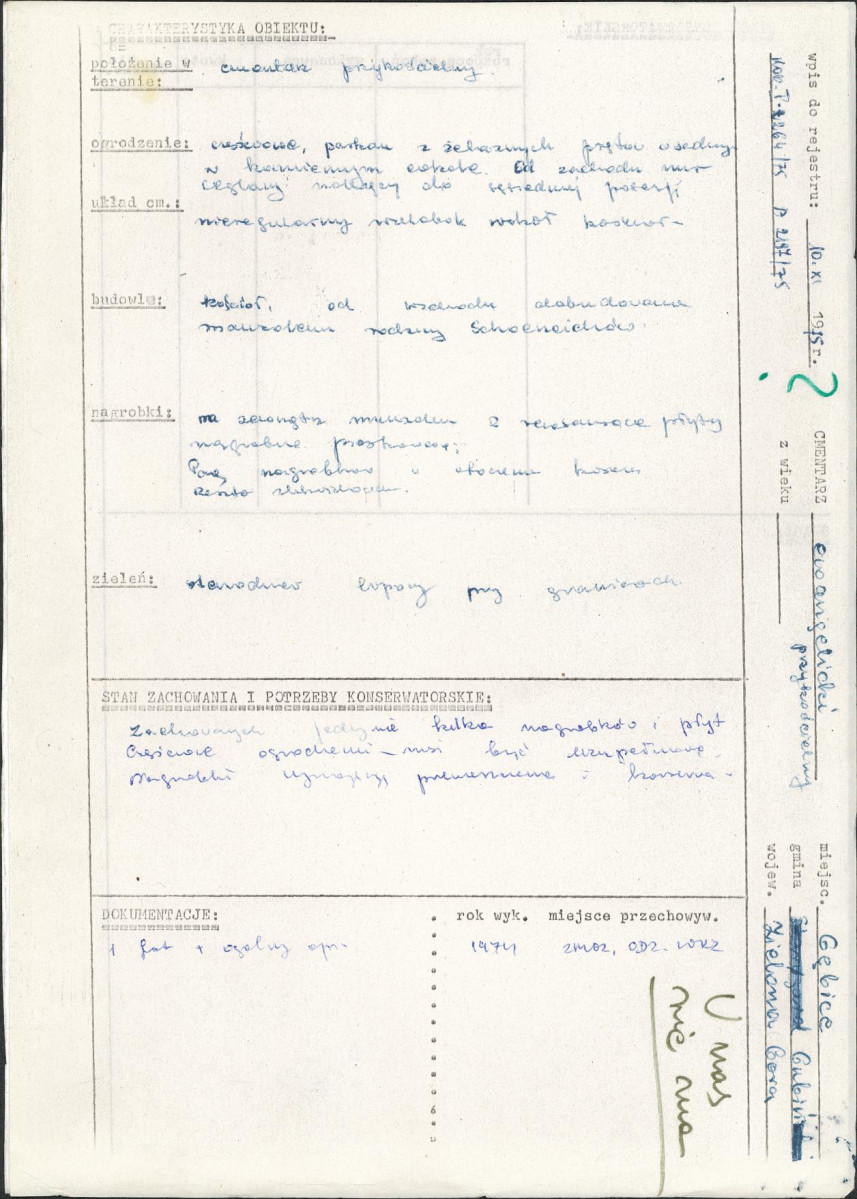 CHARAKTERYSTYKA OBIEKTU:
położenie w terenie: cmentarz przykościelny
ogrodzenie: częściowe, parkan z żelaznych prętów osadzony
w kamiennym cokole. Od zachodu mur
ceglany należący do sąsiedniej posesji
układ cm.:
nieregularny wielobok wokół kościoła
budowle: kościół, od wschodu dobudowane
mauzoleum rodziny Schoeneichów.
nagrobki: na zewnątrz 2 renesansowe płyty
nagrobne piaskowcowe;
nagrobków w otoczeniu
Reszta
zieleń: starodrzew lipowy przy granicach.
STAN ZACHOWANIA I POTRZEBY KONSERWATORSKIE:
Zachowanych jedynie kilka nagrobków i płyt
Częściowe ogrodzenie - musi być uzupełnione.
Nagrobki wymagają i
DOKUMENTACJE:
rok wyk. miejsce przechowyw.
1 fot + ogólny opis
1974
U nas
nie ma
wpis do rejestru: 10.XI 1975r.
2264/75 2197/75
?
CMENTARZ ewangelicki
przykościelny
z wieku
miejsc. Gębice
gmina Gubin
wojew. Zielona Góra